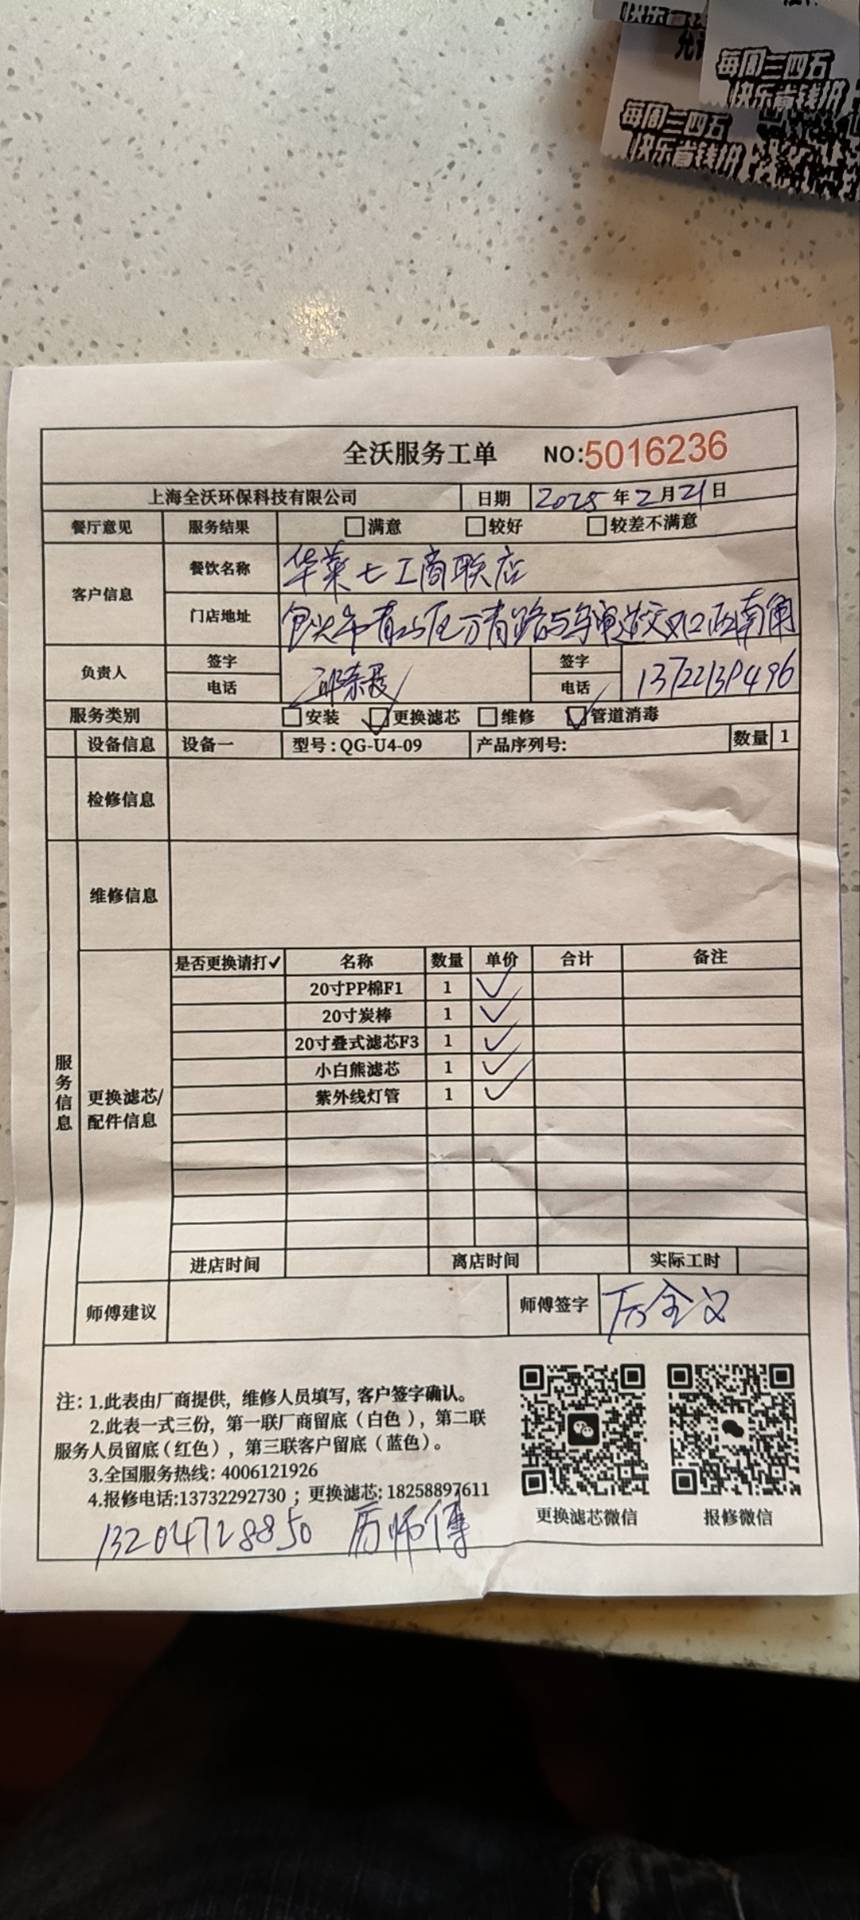 每周三四五
每周三四五
快乐省钱拼
快乐省钱拼
全沃服务工单 NO:5016236
上海全沃环保科技有限公司 日期 2025年2月21日
餐厅意见 服务结果 □满意 □较好 □较差不满意
客户信息 餐饮名称 华莱七工商联店
门店地址 包头市青山区万青路与 交叉口西南角
负责人 签字 签字
电话 电话 13722139496
服务类别 □安装 ☑更换滤芯 □维修 ☑管道消毒
设备信息 设备一 型号:QG-U4-09 产品序列号: 数量 1
检修信息
维修信息
服务信息
更换滤芯/配件信息
是否更换请打✓ 名称 数量 单价 合计 备注
20寸PP棉F1 1 ✓
20寸炭棒 1 ✓
20寸叠式滤芯F3 1 ✓
小白熊滤芯 1 ✓
紫外线灯管 1 ✓
进店时间 离店时间 实际工时
师傅建议 师傅签字 厉全义
注: 1.此表由厂商提供, 维修人员填写, 客户签字确认。
2.此表一式三份, 第一联厂商留底(白色), 第二联
服务人员留底(红色), 第三联客户留底(蓝色)。
3.全国服务热线: 4006121926
4.报修电话:13732292730 ; 更换滤芯: 18258897611
更换滤芯微信 报修微信
13204728850 厉师傅